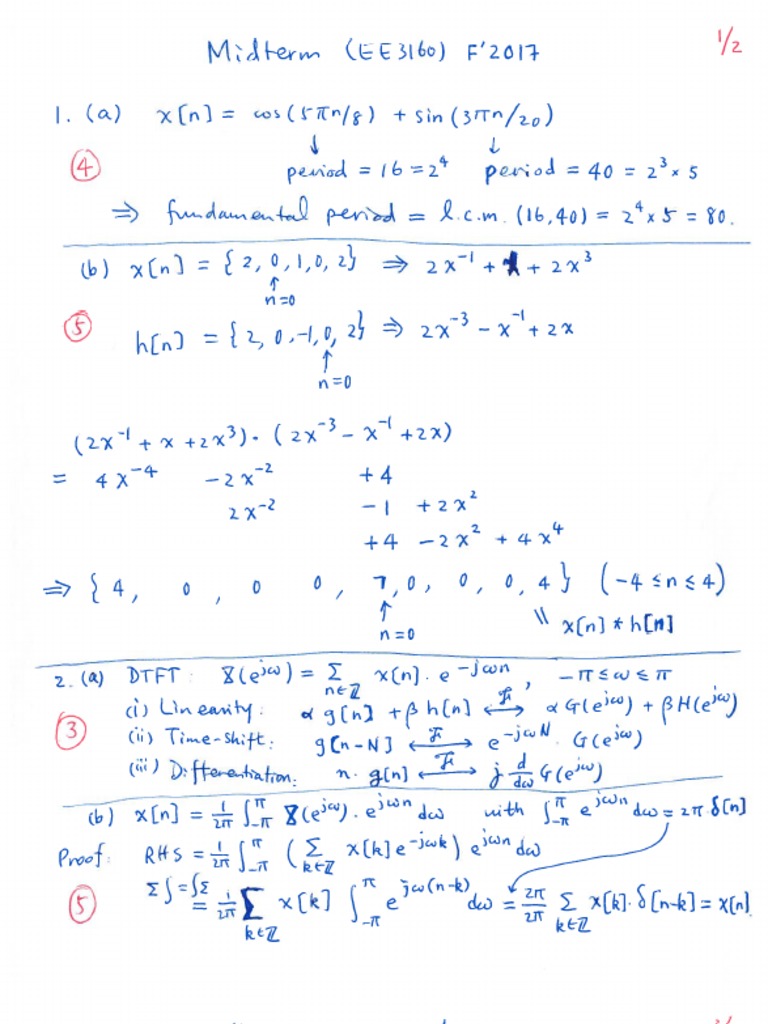 Midterm (EE3160) F'2017
1/2
1. (a) x[n] = cos(5πn/8) + sin(3πn/20)
④ ↓ period = 16 = 2⁴ ↓ period = 40 = 2³ × 5
⇒ fundamental period = l.c.m. (16,40) = 2⁴ × 5 = 80.
(b) x[n] = { 2, 0, 1, 0, 2} ⇒ 2x⁻¹ + x + 2x³
↑
n=0
⑤ h[n] = { 2, 0, -1, 0, 2} ⇒ 2x⁻³ - x⁻¹ + 2x
↑
n=0
(2x⁻¹ + x + 2x³) · (2x⁻³ - x⁻¹ + 2x)
= 4x⁻⁴ -2x⁻² +4
2x⁻² -1 +2x²
+4 -2x² + 4x⁴
⇒ { 4, 0, 0 0, 7, 0, 0, 0, 4 } (-4 ≤ n ≤ 4)
↑ \\ x[n] * h[n]
n=0
2. (a) DTFT: X(e^{jω}) = Σ_{n∈ℤ} x[n]. e^{-jωn}, -π ≤ ω ≤ π
(i) Linearity: α g[n] + β h[n] ⟷^{ℱ} α G(e^{jω}) + β H(e^{jω})
③ (ii) Time-shift: g[n-N] ⟷^{ℱ} e^{-jωN}. G(e^{jω})
(iii) Differentiation: n. g[n] ⟷^{ℱ} j d/dω G(e^{jω})
(b) x[n] = 1/2π ∫_{-π}^{π} X(e^{jω}). e^{jωn} dω with ∫_{-π}^{π} e^{jωn} dω = 2π.δ[n]
Proof: RHS = 1/2π ∫_{-π}^{π} ( Σ_{k∈ℤ} x[k] e^{-jωk} ) e^{jωn} dω
⑤ Σ∫=∫Σ = 1/2π Σ_{k∈ℤ} x[k] ∫_{-π}^{π} e^{jω(n-k)} dω = 2π/2π Σ_{k∈ℤ} x[k]. δ[n-k] = x[n].